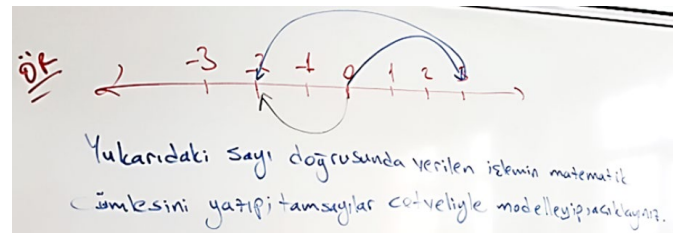 ÖR
-3 -2 -1 0 1 2 3
Yukarıdaki sayı doğrusunda verilen işlemin matematik
cümlesini yazıp, tamsayılar cetveliyle modelleyip açıklayınız.